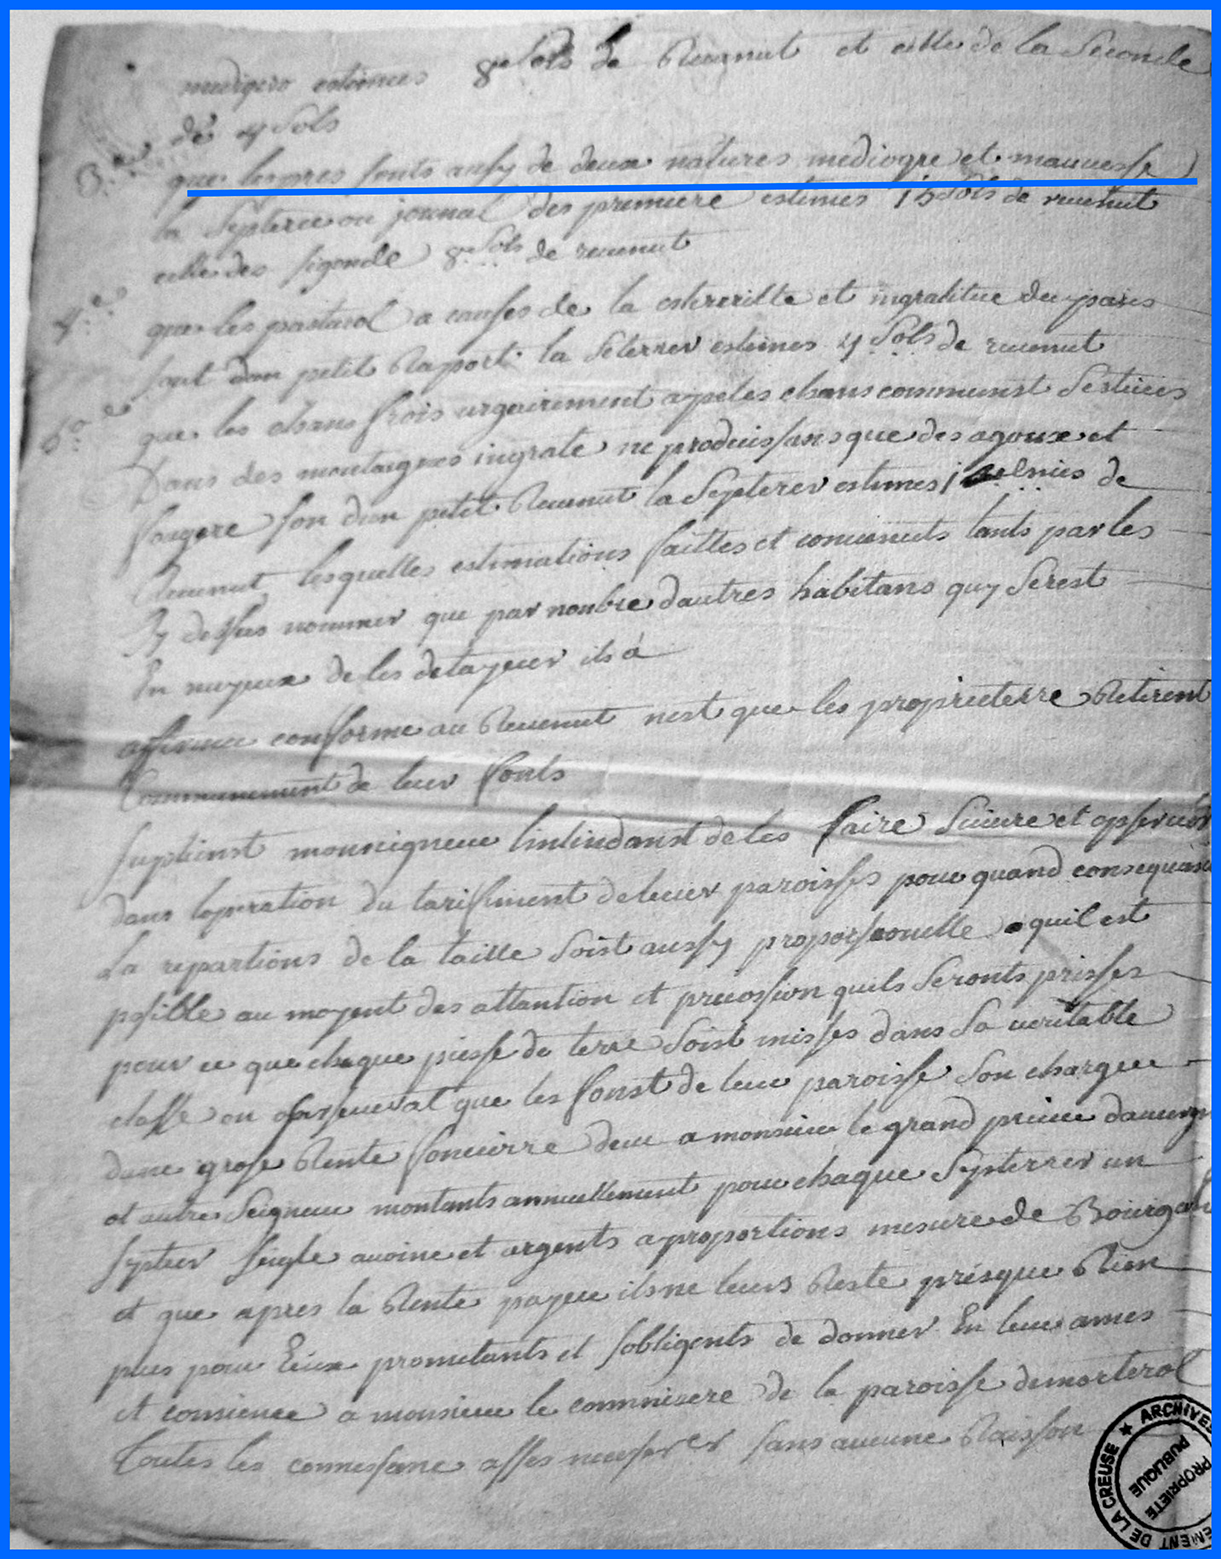 mediocre estimées 8 sols de Revenut et celle de la Seconde
de 4 Sols
3.e que les pres sonts aussy de deux natures mediogre et mauvesse
la Septeree ou journal des premiere estimés 15 sols de revenut
celle des segonde 8 sols de revenut
4.e que les pastural a causes de la esterrilte et ingratitue du païs
sont dun petit Raport la Seterrer estimes 4 Sols de revenut
que les chans frois apeles chans communst Sestuées
Dans des montaignes ingrate ne produissans que des agoux et
fougere son dun petit Revenut la Septerer estimes de
Revenut lesquelles estimations faittes et convenuts tants par les
Sy dessus nommer que par nombre dautres habitans quy Serest
En de les ils a
conforme au Revenut nest que les proprieterre Retirent
Communement de leur fonts
suplienst monseigneur lintendanst de les faire Suivre et opserver
dans loperation du tarifiment de leur paroisses pour quand consequance
La repartions de la taille Soist aussy proporsionelle quil est
posible au moyent des attantion et precossion quils Seronts prisses
pour ce que chaque piesse de terre Soist misses dans Sa veritable
classe on opservera que les fonst de leur paroisse Son chargee
dune grose Rente fonsierre deue a monsieur le grand prieur dauvergne
et autre Seigneur montants annuellement pour chaque Septerrer un
septier seigle avoine et argents a proportions mesure de Bourganeuf
et que apres la Rente payee ils ne leurs Reste presque Rien
plus pour Eux prometants et sobligents de donner En leur ames
et consience a monsieur le commisere de la paroisse de morterol
Toutes les connessance sans aucune Raisson
ARCHIVES
DE LA CREUSE
PROPRIETE
PUBLIQUE